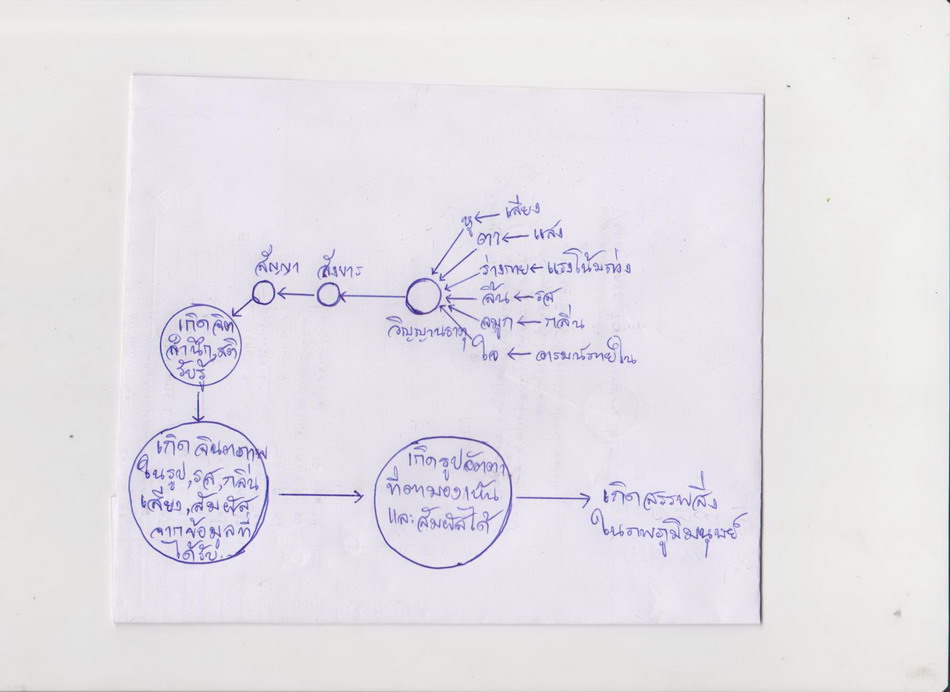 หู ← เสียง
ตา ← แสง
ร่างกาย ← แรงโน้มถ่วง
ลิ้น ← รส
จมูก ← กลิ่น
ใจ ← อารมณ์ภายใน
วิญญานธาตุ
สังขาร
สัญญา
เกิดจิต
สำนึก,สติ
รับรู้
เกิดจินตภาพ
ในรูป,รส,กลิ่น
เสียง,สัมผัส
จากข้อมูลที่
ได้รับ...
เกิดรูปอัตตา
ที่ตามองเห็น
และสัมผัสได้
เกิดสรรพสิ่ง
ในภพภูมิมนุษย์